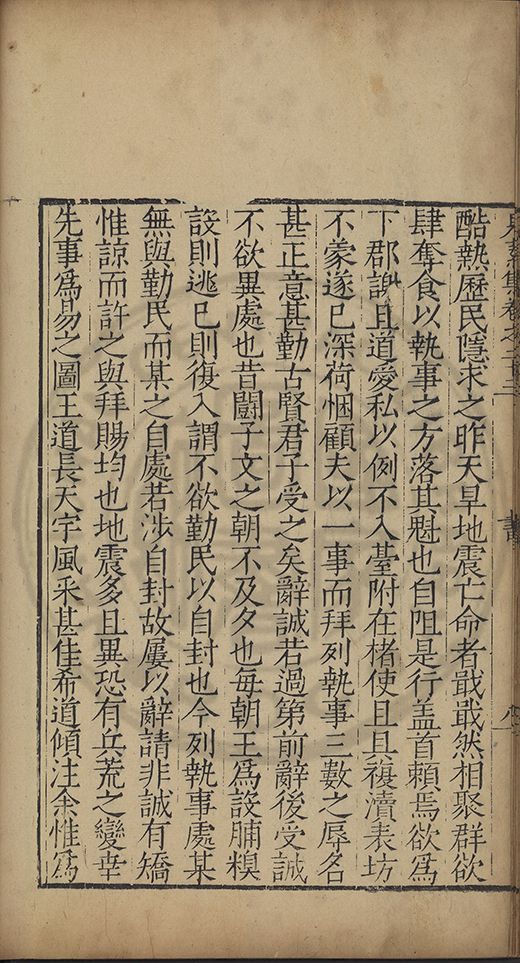 酷熱歷民隱求之昨天旱地震亡命者戢戢然相聚群欲
肆奪食以執事之方落其魁也自阻是行盖首賴焉欲爲
下郡謝且道愛私以例不入臺附在楮使且且複瀆表坊
不蒙遂已深荷悃顧夫以一事而拜列執事三數之辱名
甚正意甚勤古賢君子受之矣辭誠若過第前辭後受誠
不欲異處也昔鬬子文之朝不及夕也每朝王爲設脯糗
設則逃已則復入謂不欲勤民以自封也今列執事處某
無與勤民而某之自處若涉自封故屢以辭請非誠有矯
惟諒而許之與拜賜均也地震多且異恐有兵荒之變幸
先事爲易之圖王道長天宇風采甚佳希道傾注余惟爲